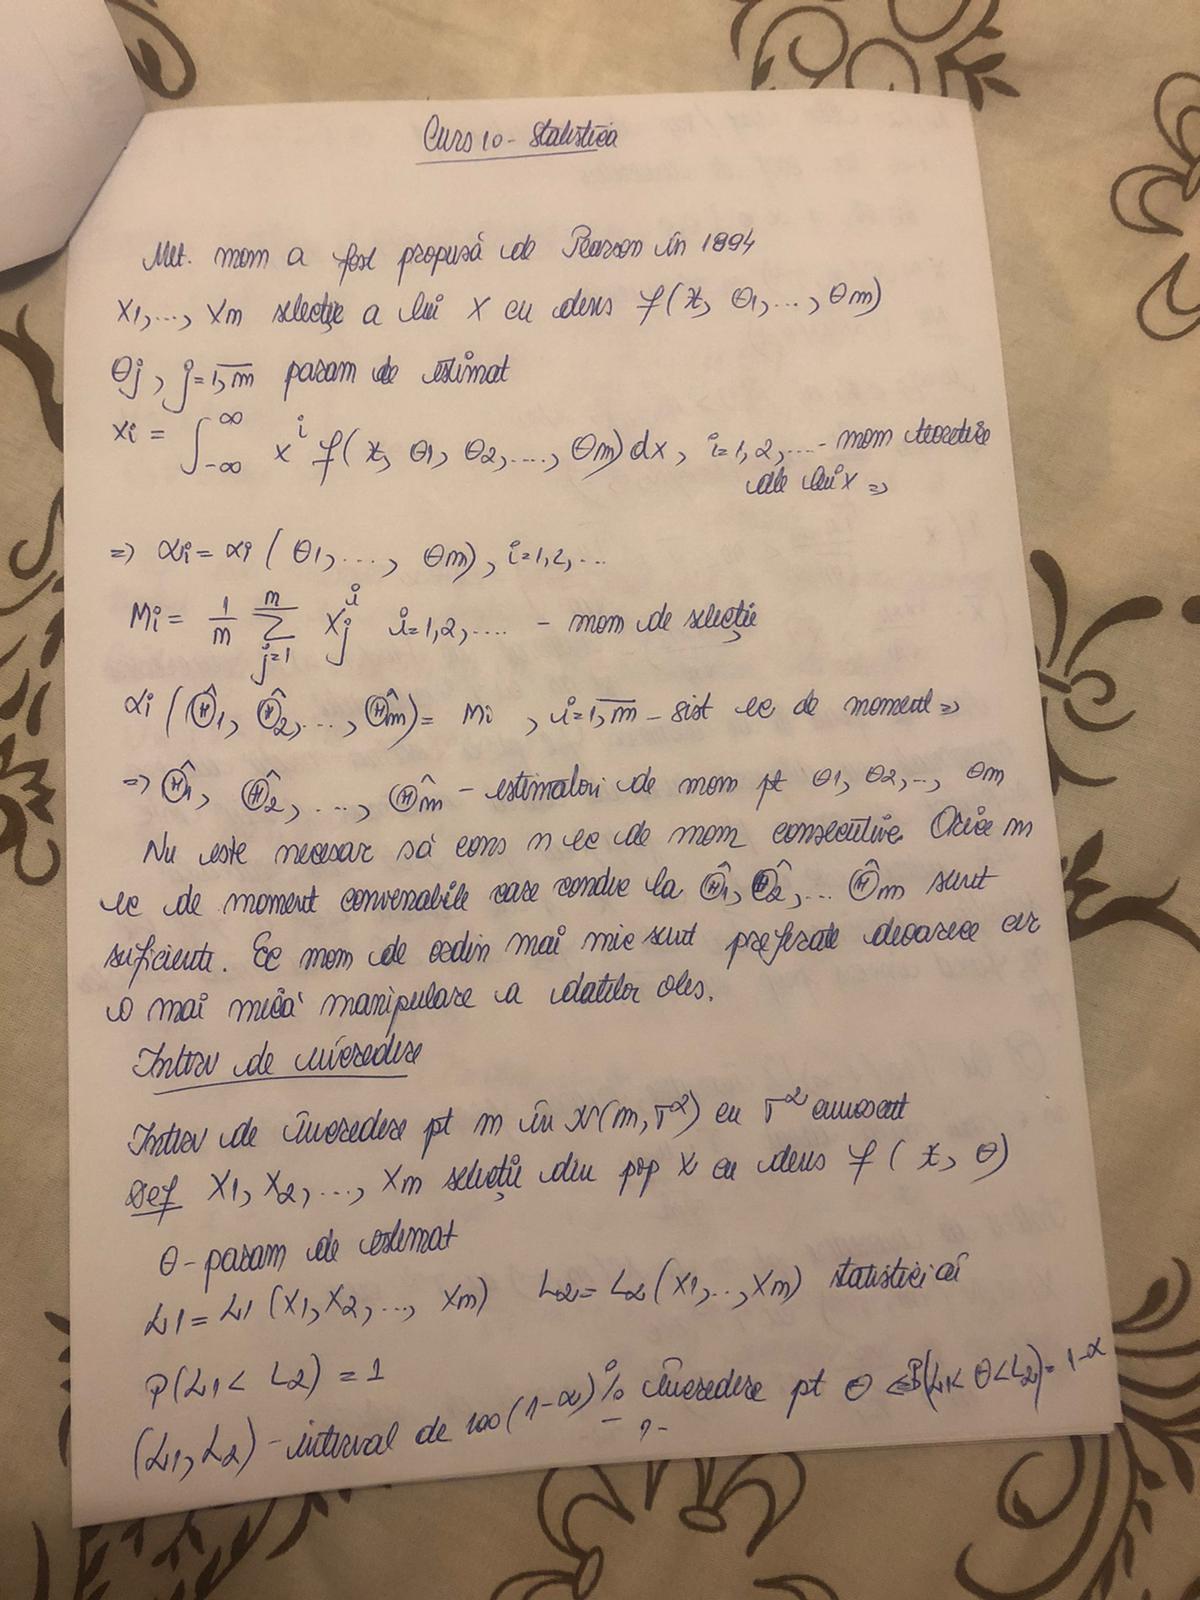 Curs 10 - Statistica
Met. mom a fost propusă de Pearson în 1894
X1, ..., Xm selecție a lui X cu dens f(x, θ1, ..., θm)
θj, j=1,m param de estimat
αi = ∫_{-∞}^{∞} x^i f(x, θ1, θ2, ..., θm) dx, i=1,2,... - mom teoretice
ale lui X =>
=> αi = αi (θ1, ..., θm), i=1,2,...
Mi = 1/m ∑_{j=1}^{m} Xj^i i=1,2,.... - mom de selecție
αi (Θ̂1, Θ̂2, ..., Θ̂m) = Mi , i=1,m - sist ec de moment =>
=> Θ̂1, Θ̂2, ..., Θ̂m - estimatori de mom pt θ1, θ2, .., θm
Nu este necesar să cons n ec de mom consecutive. Orice m
ec de moment convenabile care conduc la Θ̂1, Θ̂2, ... Θ̂m sunt
suficiente. Ec mom de ordin mai mic sunt preferate deoarece cer
o mai mică manipulare a datelor obs.
Interv de încredere
Interv de încredere pt m în N(m, σ²) cu σ² cunoscut
Def X1, X2, ..., Xm selecții din pop X cu dens f(x, θ)
θ - param de estimat
L1 = L1 (X1, X2, ..., Xm) L2 = L2 (X1, .., Xm) statistici aî
P(L1 < L2) = 1
(L1, L2) - interval de 100(1-α)% încredere pt θ <=> P(L1 < θ < L2) = 1-α
- " -